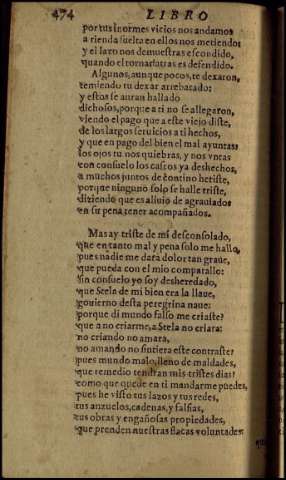 474 LIBRO
por tus inormes vicios nos andamos
a rienda suelta en ellos nos metiendo:
y el lazo nos demuestras escondido,
quando el tornar atras es defendido.
Algunos, aunque pocos, te dexaron,
temiendo tu dexar arrebatado:
y estos se auran hallado
dichosos, porque a ti no se allegaron,
viendo el pago que a este viejo diste,
de los largos seruicios a ti hechos,
y que en pago del bien el mal ayuntas:
los ojos tu nos quiebras, y nos vntas
con consuelo los cascos ya deshechos,
a muchos juntos de contino heriste,
porque ninguno solo se halle triste,
diziendo que es aliuio de agrauiados
en su pena tener acompañados.
Mas ay triste de mi desconsolado,
que en tanto mal y pena solo me hallo,
pues nadie me dara dolor tan graue,
que pueda con el mio comparallo:
sin consuelo yo soy desheredado,
que Stela de mi bien era la llaue,
gouierno desta peregrina naue:
porque di mundo falso me criaste?
que a no criarme, a Stela no criara:
no criando no amara,
no amando no sintiera este contraste:
pues mundo malo, lleno de maldades,
que remedio tendran mis tristes dias?
como que quede en ti mandarme puedes,
pues he visto tus lazos y tus redes,
tus anzuelos, cadenas, y falsias,
tus obras y engañosas propiedades,
que prenden nuestras flacas voluntades: